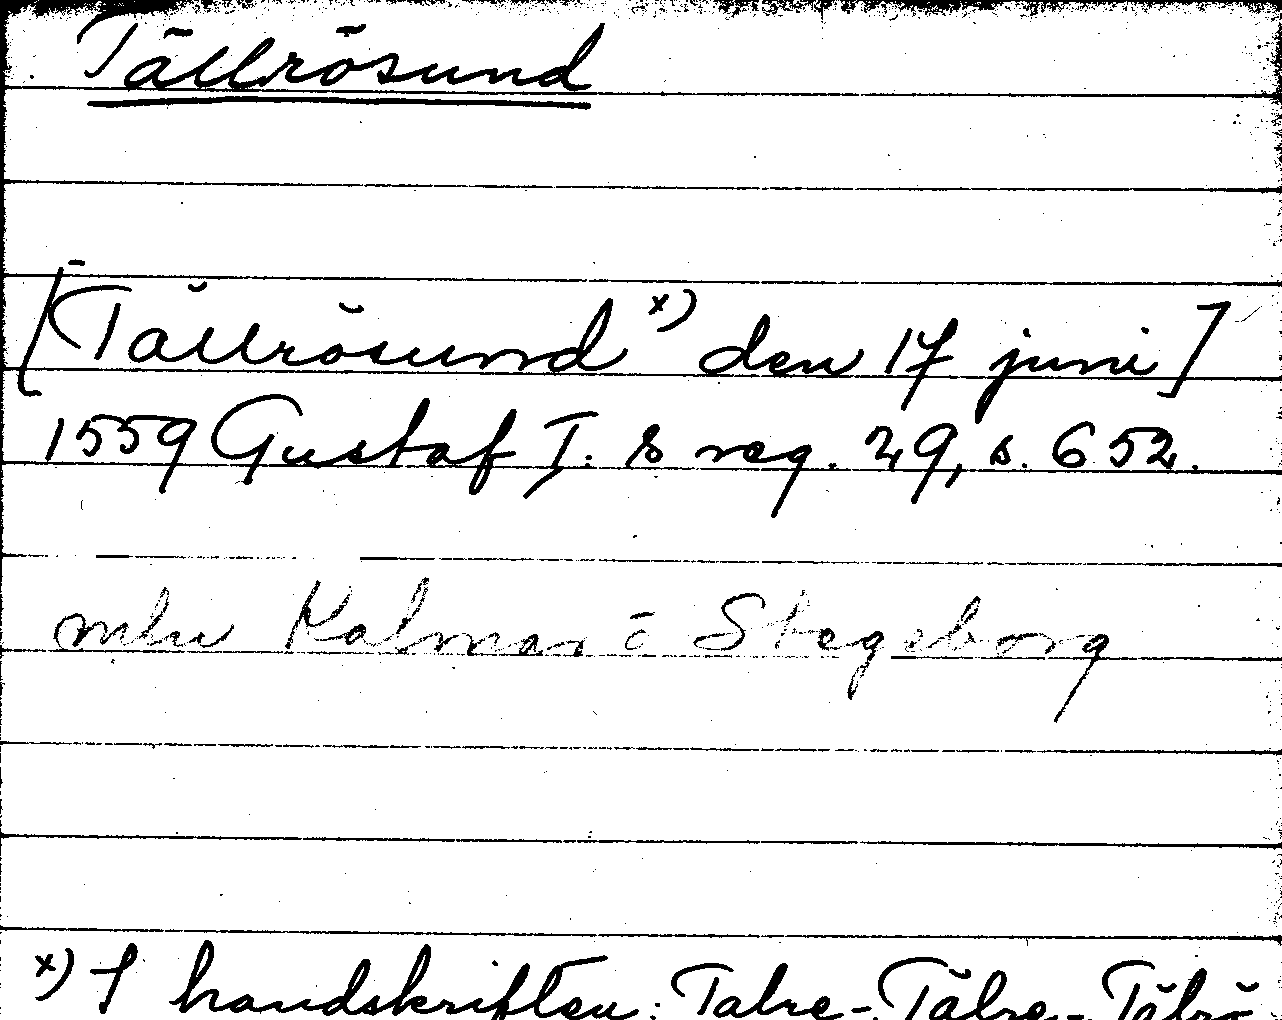 Tällrösund
[Tällrösund x) den 17 juni]
1559 Gustaf I:s reg. 29, s. 652.
mlw Kalmar o Stegeborg
x) I handskriften: Talre-, Tälre-, Tälrö